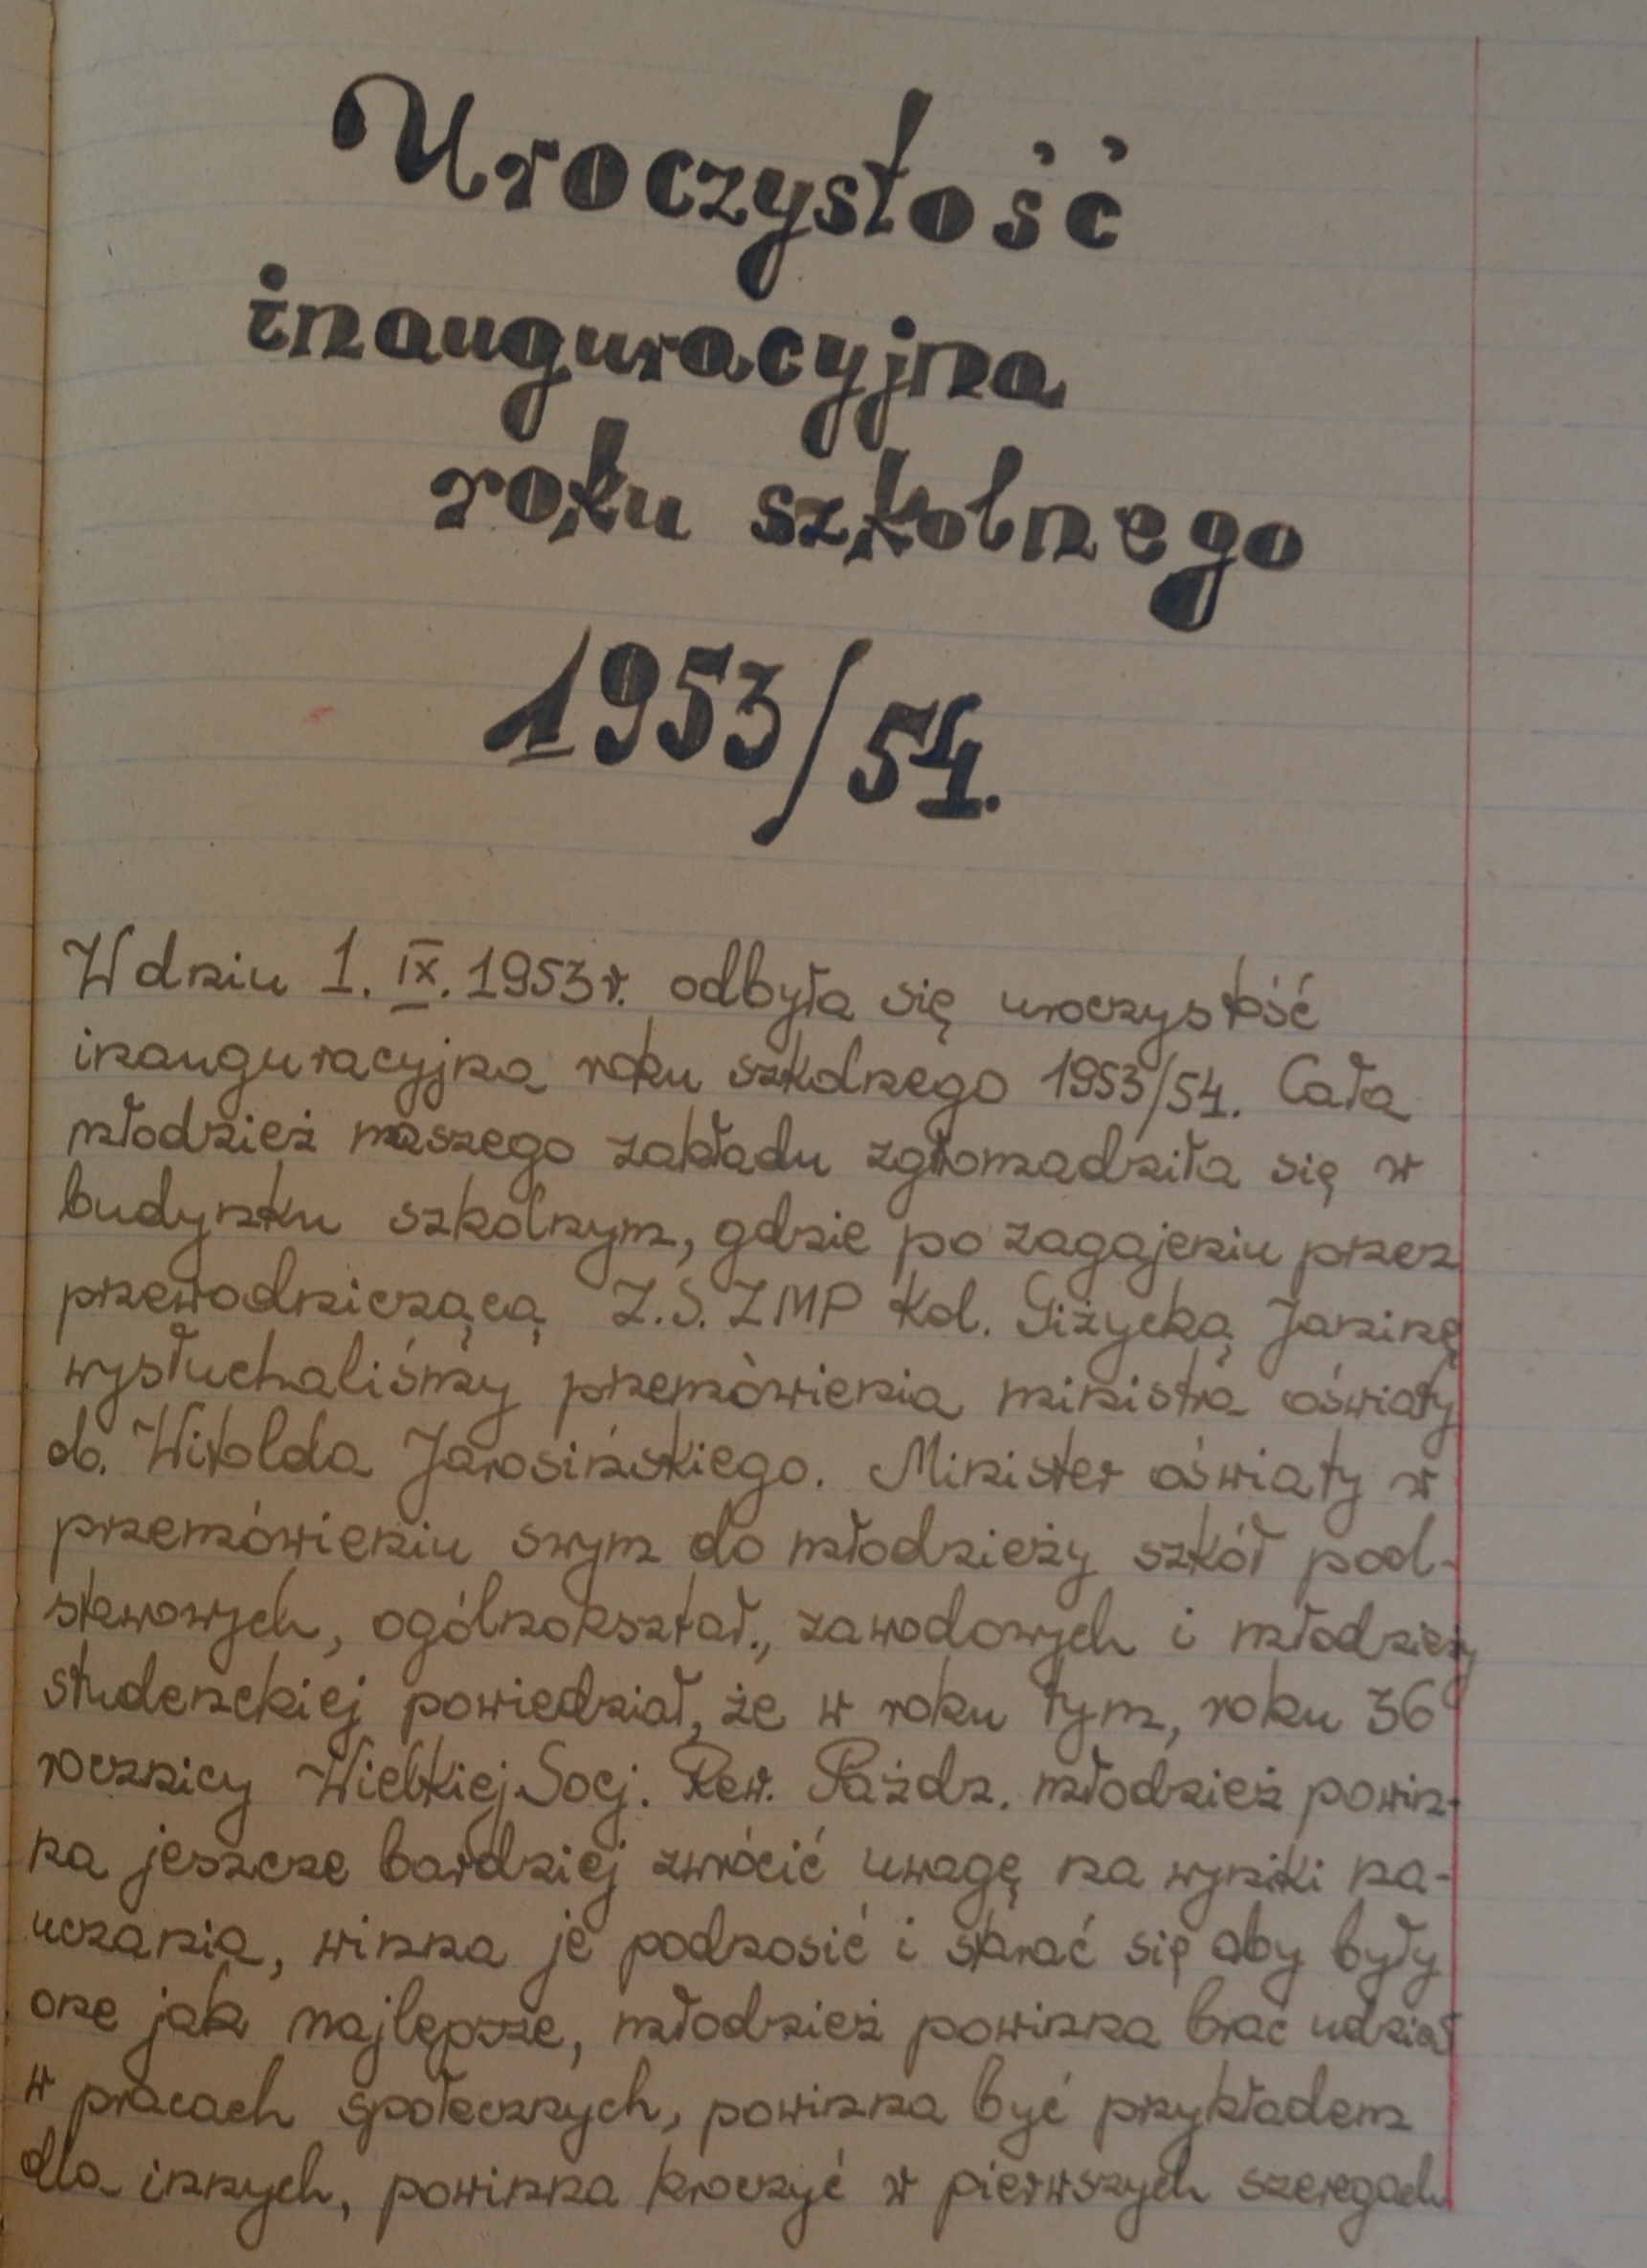 Uroczystość
inauguracyjna
roku szkolnego
1953/54.
W dniu 1. IX. 1953 r. odbyła się uroczystość
inauguracyjna roku szkolnego 1953/54. Cała
młodzież naszego zakładu zgromadziła się w
budynku szkolnym, gdzie po zagajeniu przez
przewodniczącą Z.S. ZMP Kol. Giżycką Janinę
wysłuchaliśmy przemówienia ministra oświaty
ob. Witolda Jarosińskiego. Minister oświaty w
przemówieniu swym do młodzieży szkół pod-
stawowych, ogólnokształ., zawodowych i młodzieży
studenckiej powiedział, że w roku tym, roku 36
rocznicy Wielkiej Socj. Rew. Paźdz. młodzież powin-
na jeszcze bardziej zwrócić uwagę na wyniki na-
uczania, winna je podnosić i starać się aby były
one jak najlepsze, młodzież powinna brać udział
w pracach społecznych, powinna być przykładem
dla innych, powinna kroczyć w pierwszych szeregach